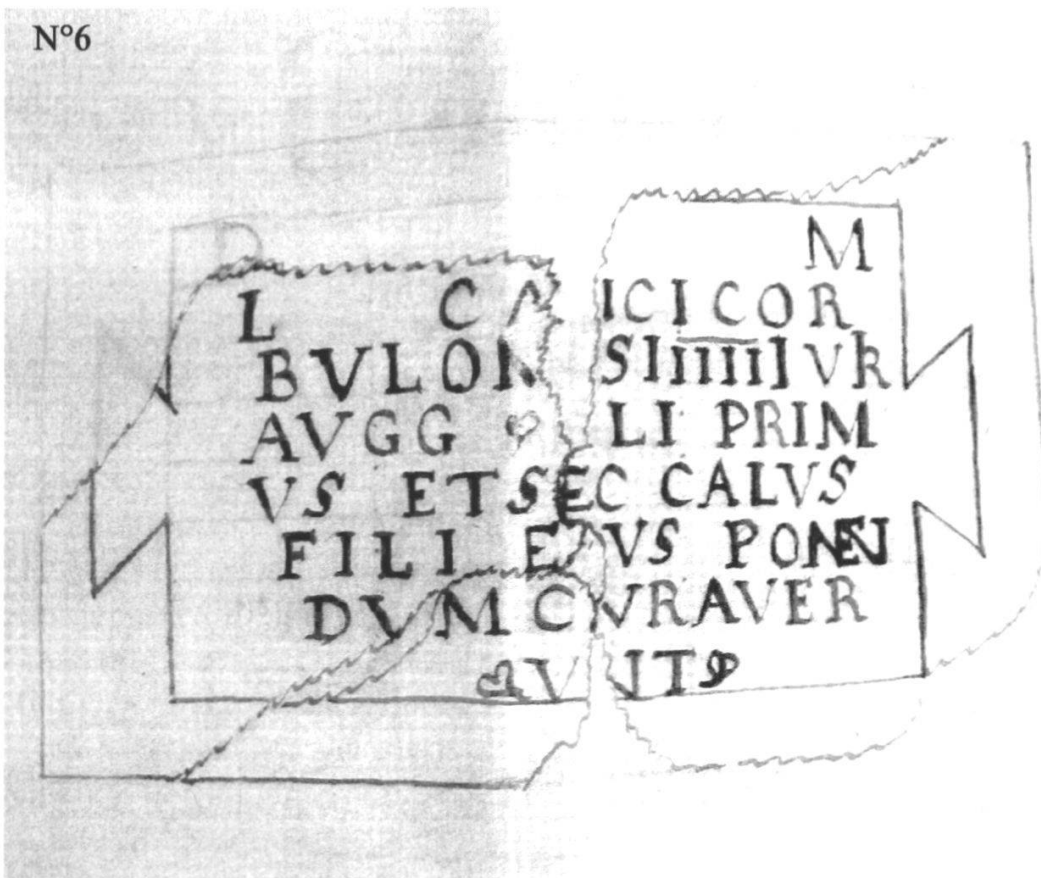 N°6
D M
L CA ICICOR
BVLON SIIIIIIVR
AVGG LI PRIM
VS ET SEC CALVS
FILI EIVS PONEN
DVM CVRAVER
VNT